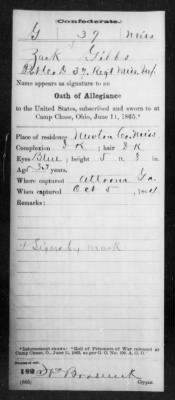 Confederate.
G 37 Miss
Zack Gibbs
Co. D 37 Regt Miss. Inf.
Name appears as signature to an
Oath of Allegiance
to the United States, subscribed and sworn to at
Camp Chase, Ohio, June 11, 1865.*
Place of residence Newton Co Miss
Complexion D K; hair D K
Eyes Blue; height 5 ft. 8 in.
Age years.
Where captured Altoona Ga.
When captured Oct 5, 1864
Remarks:
Signs by mark
*Indorsement shows: "Roll of Prisoners of War released at
Camp Chase, O., June 11, 1865, as per G. O. No. 109, A. G. O."
(605) Copyist.